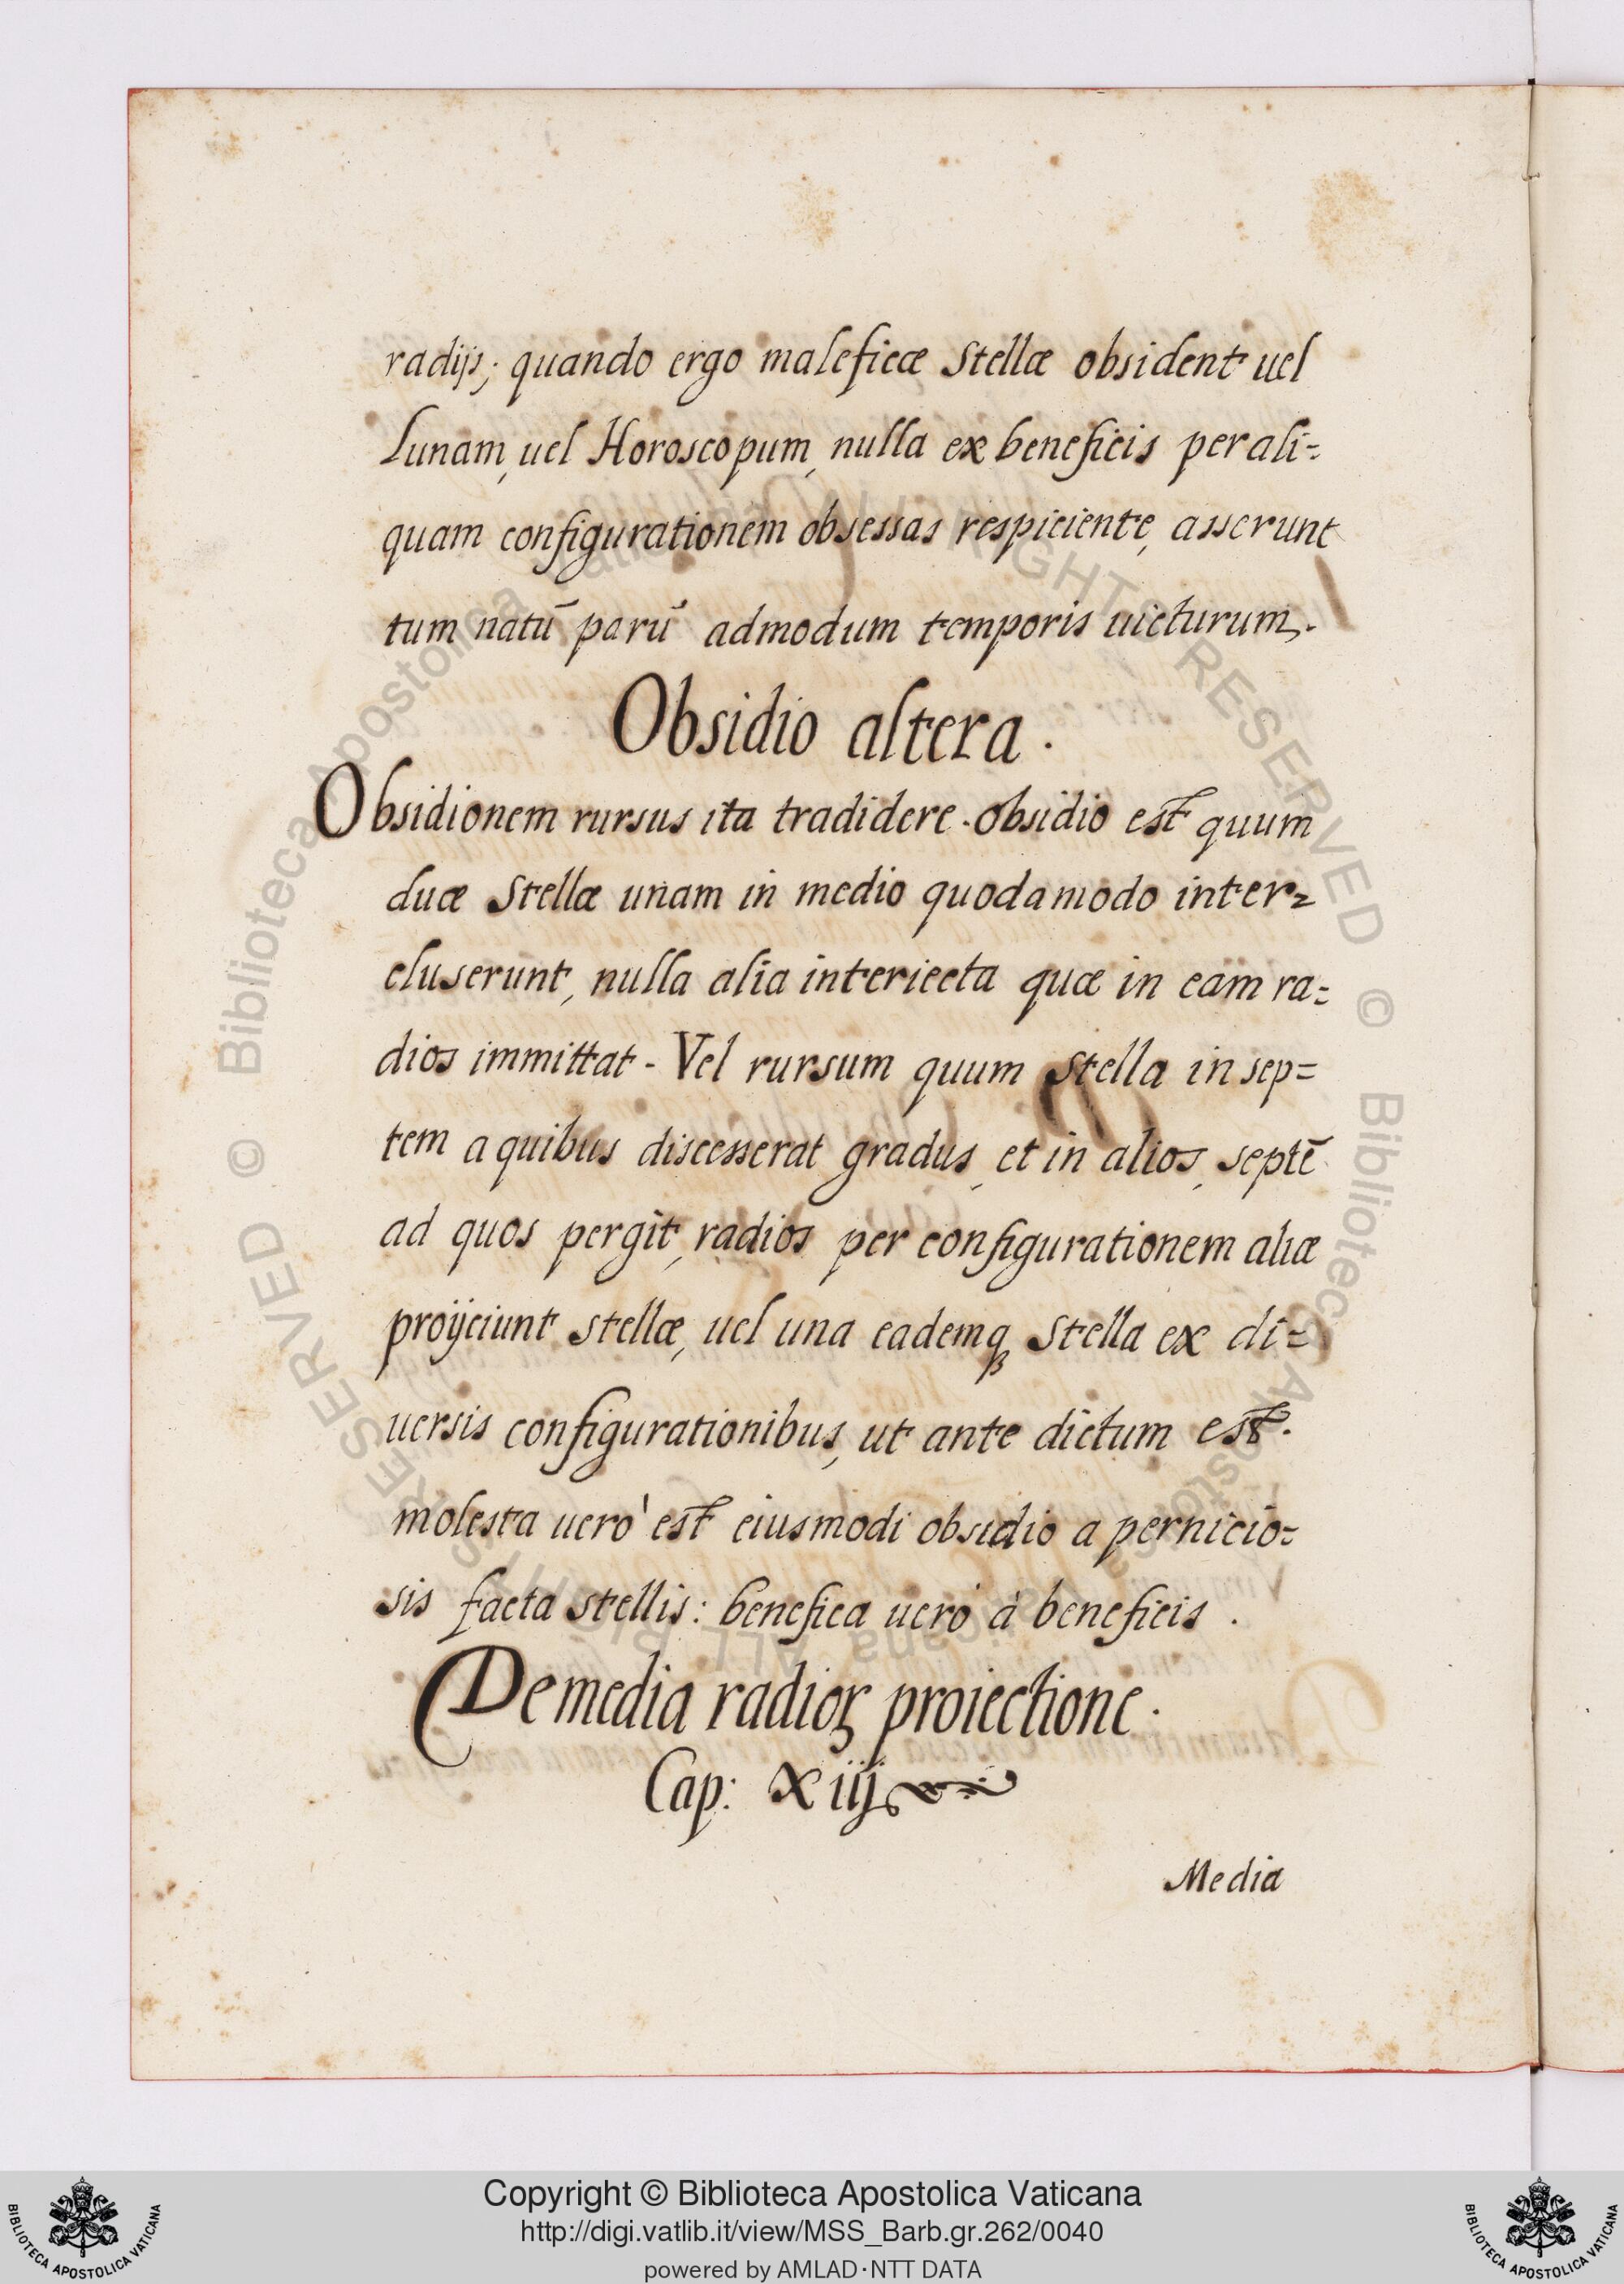 radijs; quando ergo maleficæ Stellæ obsident uel
Lunam, uel Horoscopum, nulla ex beneficis per ali=
quam configurationem obsessas respiciente, asserunt
tum natū parū admodum temporis uicturum.
Obsidio altera.
Obsidionem rursus ita tradidere. Obsidio est quum
duæ Stellæ unam in medio quodamodo inter=
cluserunt, nulla alia interiecta quæ in eam ra=
dios immittat. Vel rursum quum Stella in sep=
tem a quibus discesserat gradus, et in alios, septē
ad quos pergit, radios per configurationem aliæ
proijciunt stellæ, uel una eademqꝫ Stella ex di=
uersis configurationibus, ut ante dictum est.
molesta uerò est eiusmodi obsidio a pernicio=
sis facta stellis: benefica uerò à beneficis.
De media radioꝝ proiectione.
Cap: Xiij
Media
Copyright © Biblioteca Apostolica Vaticana
http://digi.vatlib.it/view/MSS_Barb.gr.262/0040
powered by AMLAD·NTT DATA
BIBLIOTECA APOSTOLICA VATICANA
BIBLIOTECA APOSTOLICA VATICANA